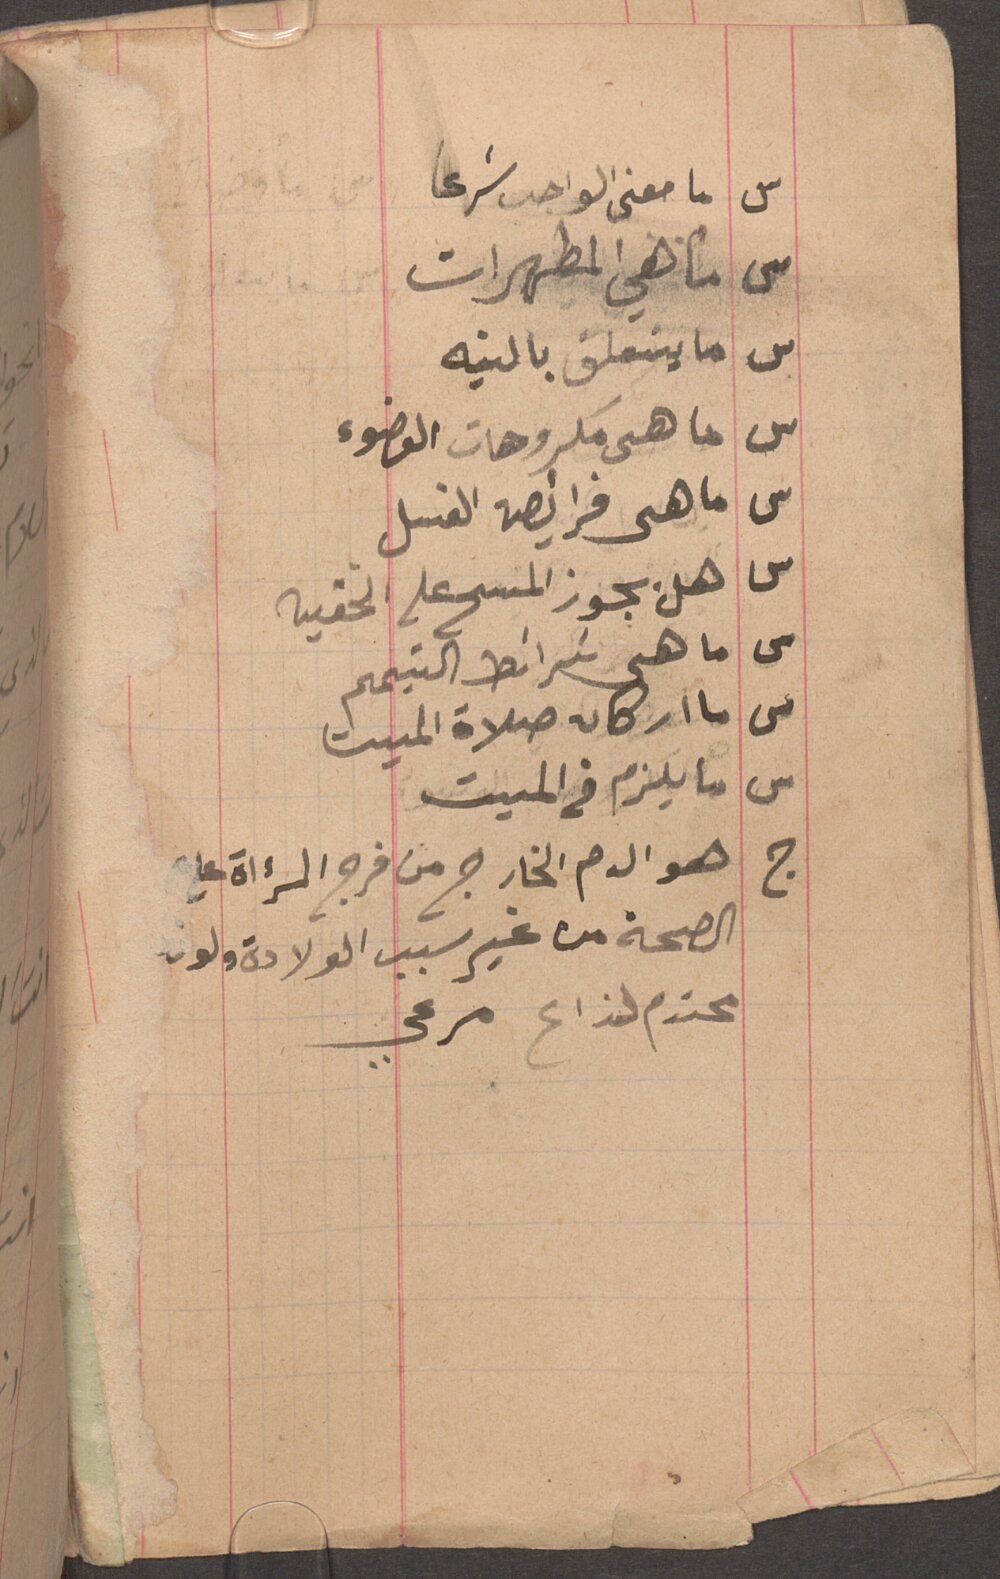 س ما معنى الواجب شرعا
س ما هي المطهرات
س ما يتعلق بالنيه
س ما هي مكروهات الوضوء
س ما هي فرائض الغسل
س هل يجوز المسح على الخفين
س ما هي شرائط التيمم
س ما اركان صلاة الميت
س ما يلزم في الميت
ج هو الدم الخارج من فرج المرؤاة على
الصحة من غير سبب الولادة ولونه
محتدم لذاع